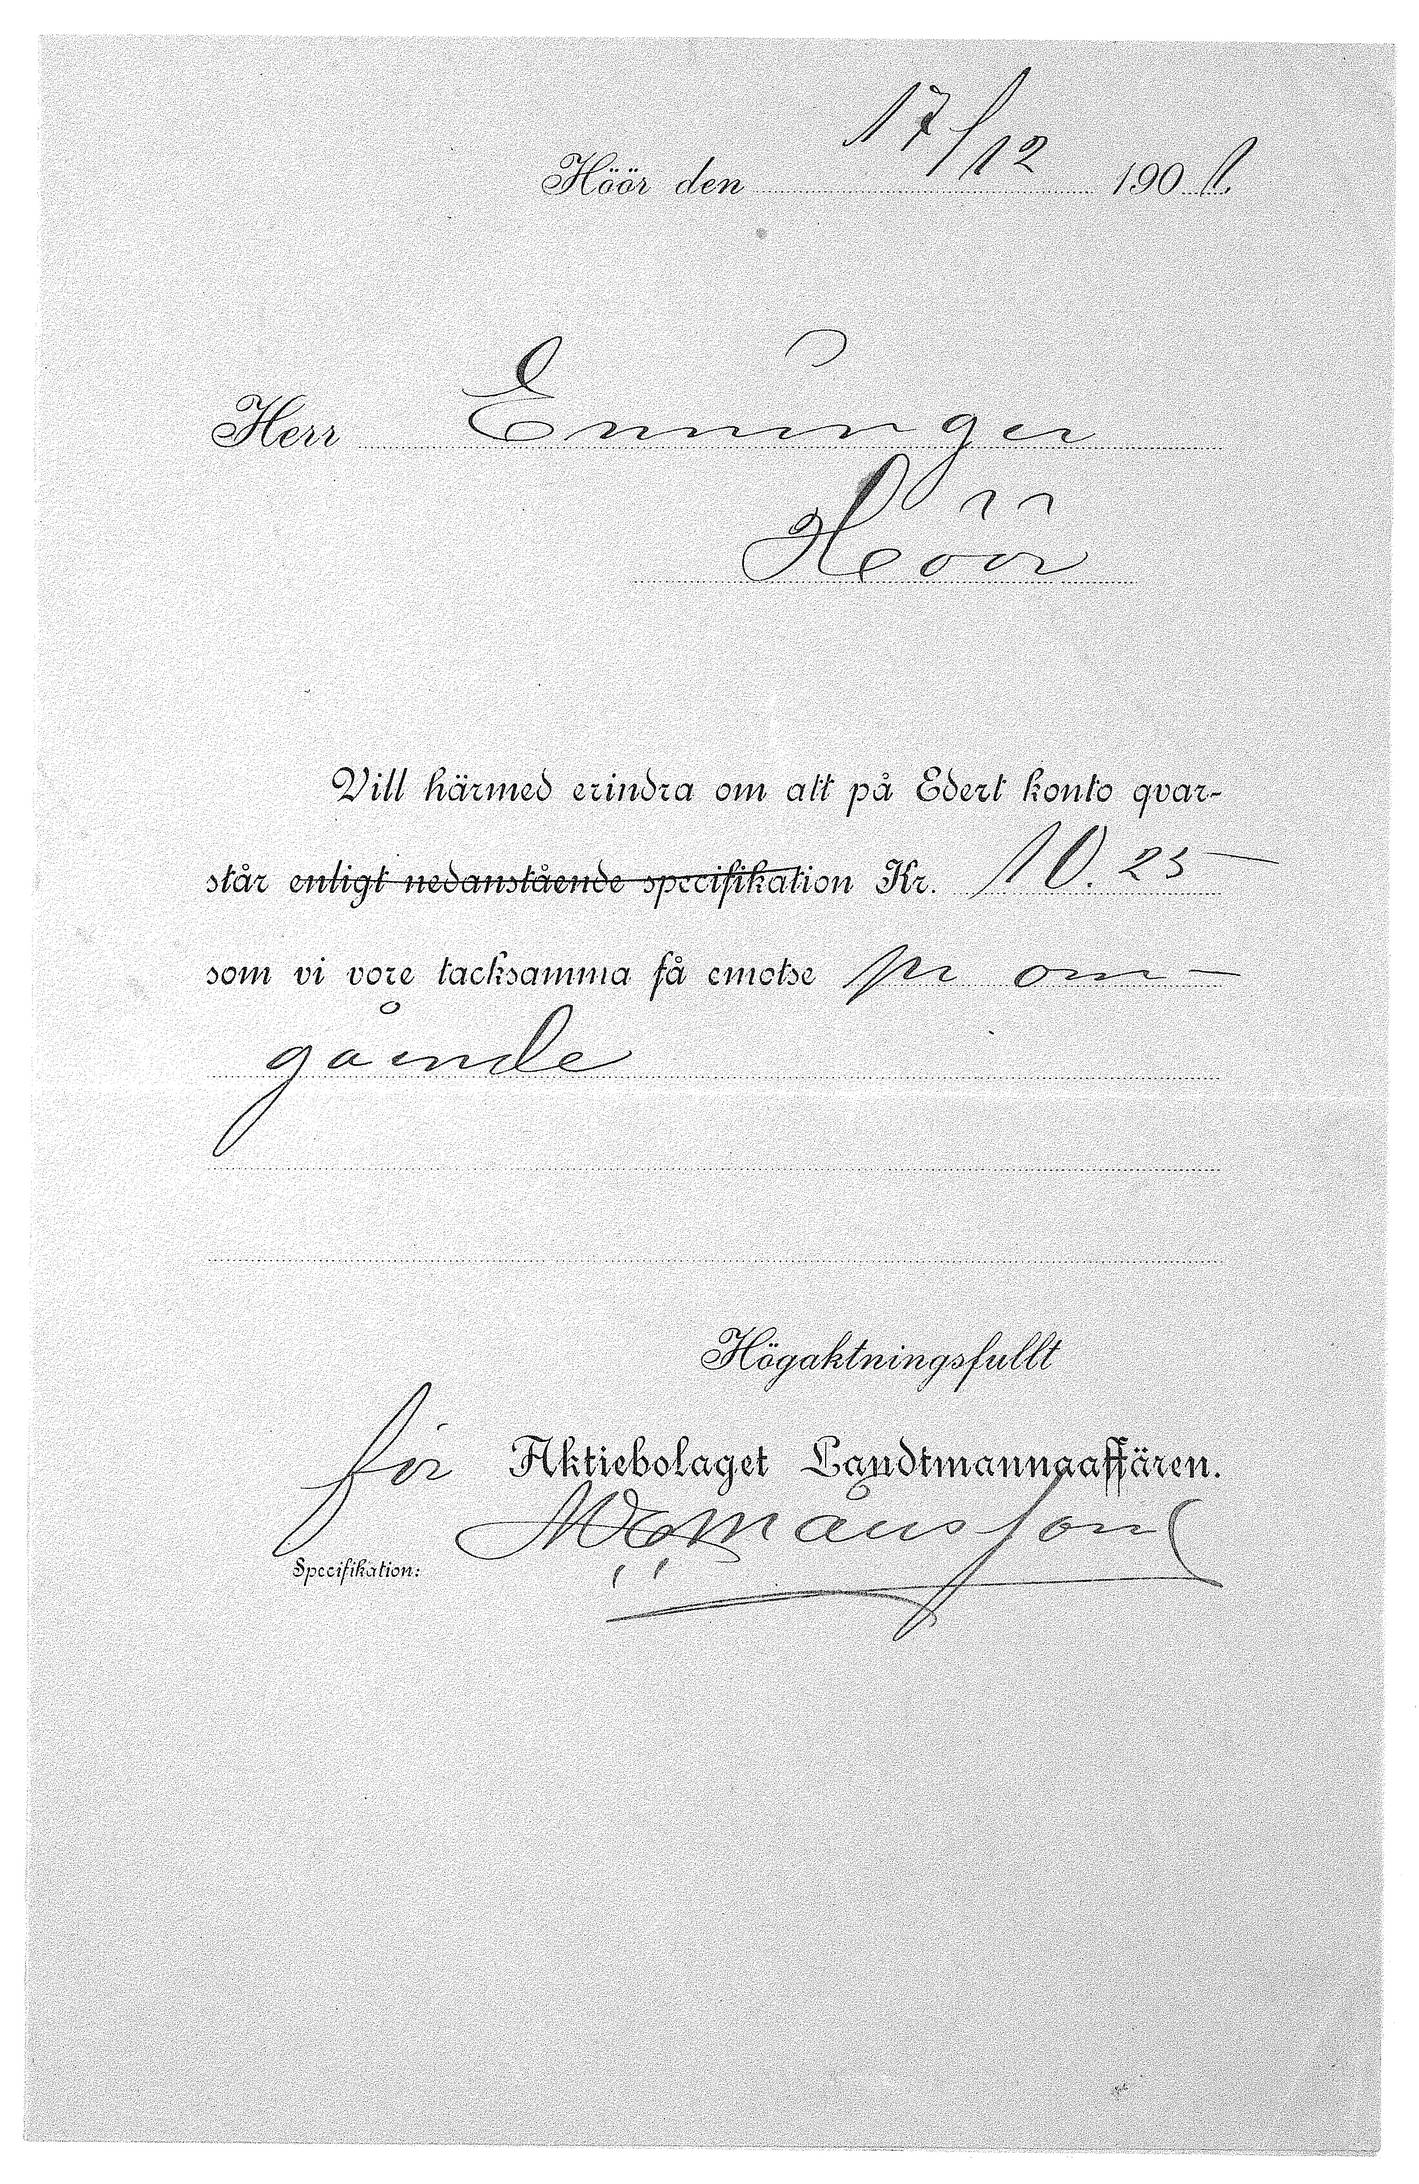 Höör den 17/12 1901.
Herr Enninger
Höör
Vill härmed erindra om att på Edert konto qvar-
står enligt nedanstående specifikation Kr. 10.25
som vi vore tacksamma få emotse pr om-
gående
Högaktningsfullt
för Aktiebolaget Landtmannaaffären.
Månsson
Specifikation: